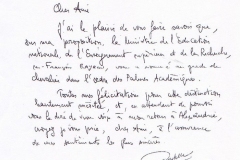 Cher Ami
J'ai le plaisir de vous faire savoir que,
sur ma proposition, le Ministre de l'Education
nationale, de l'Enseignement supérieur et de la Recherche,
M. François Bayrou, vous a nommé au grade de
chevalier dans l'ordre des Palmes Académiques.
Toutes mes félicitations pour cette distinction
hautement méritée, et en attendant de pouvoir
vous le dire de vive voix à mon retour à Alexandrie,
croyez, je vous prie, cher Ami, à l'assurance
de mes sentiments les plus amicaux